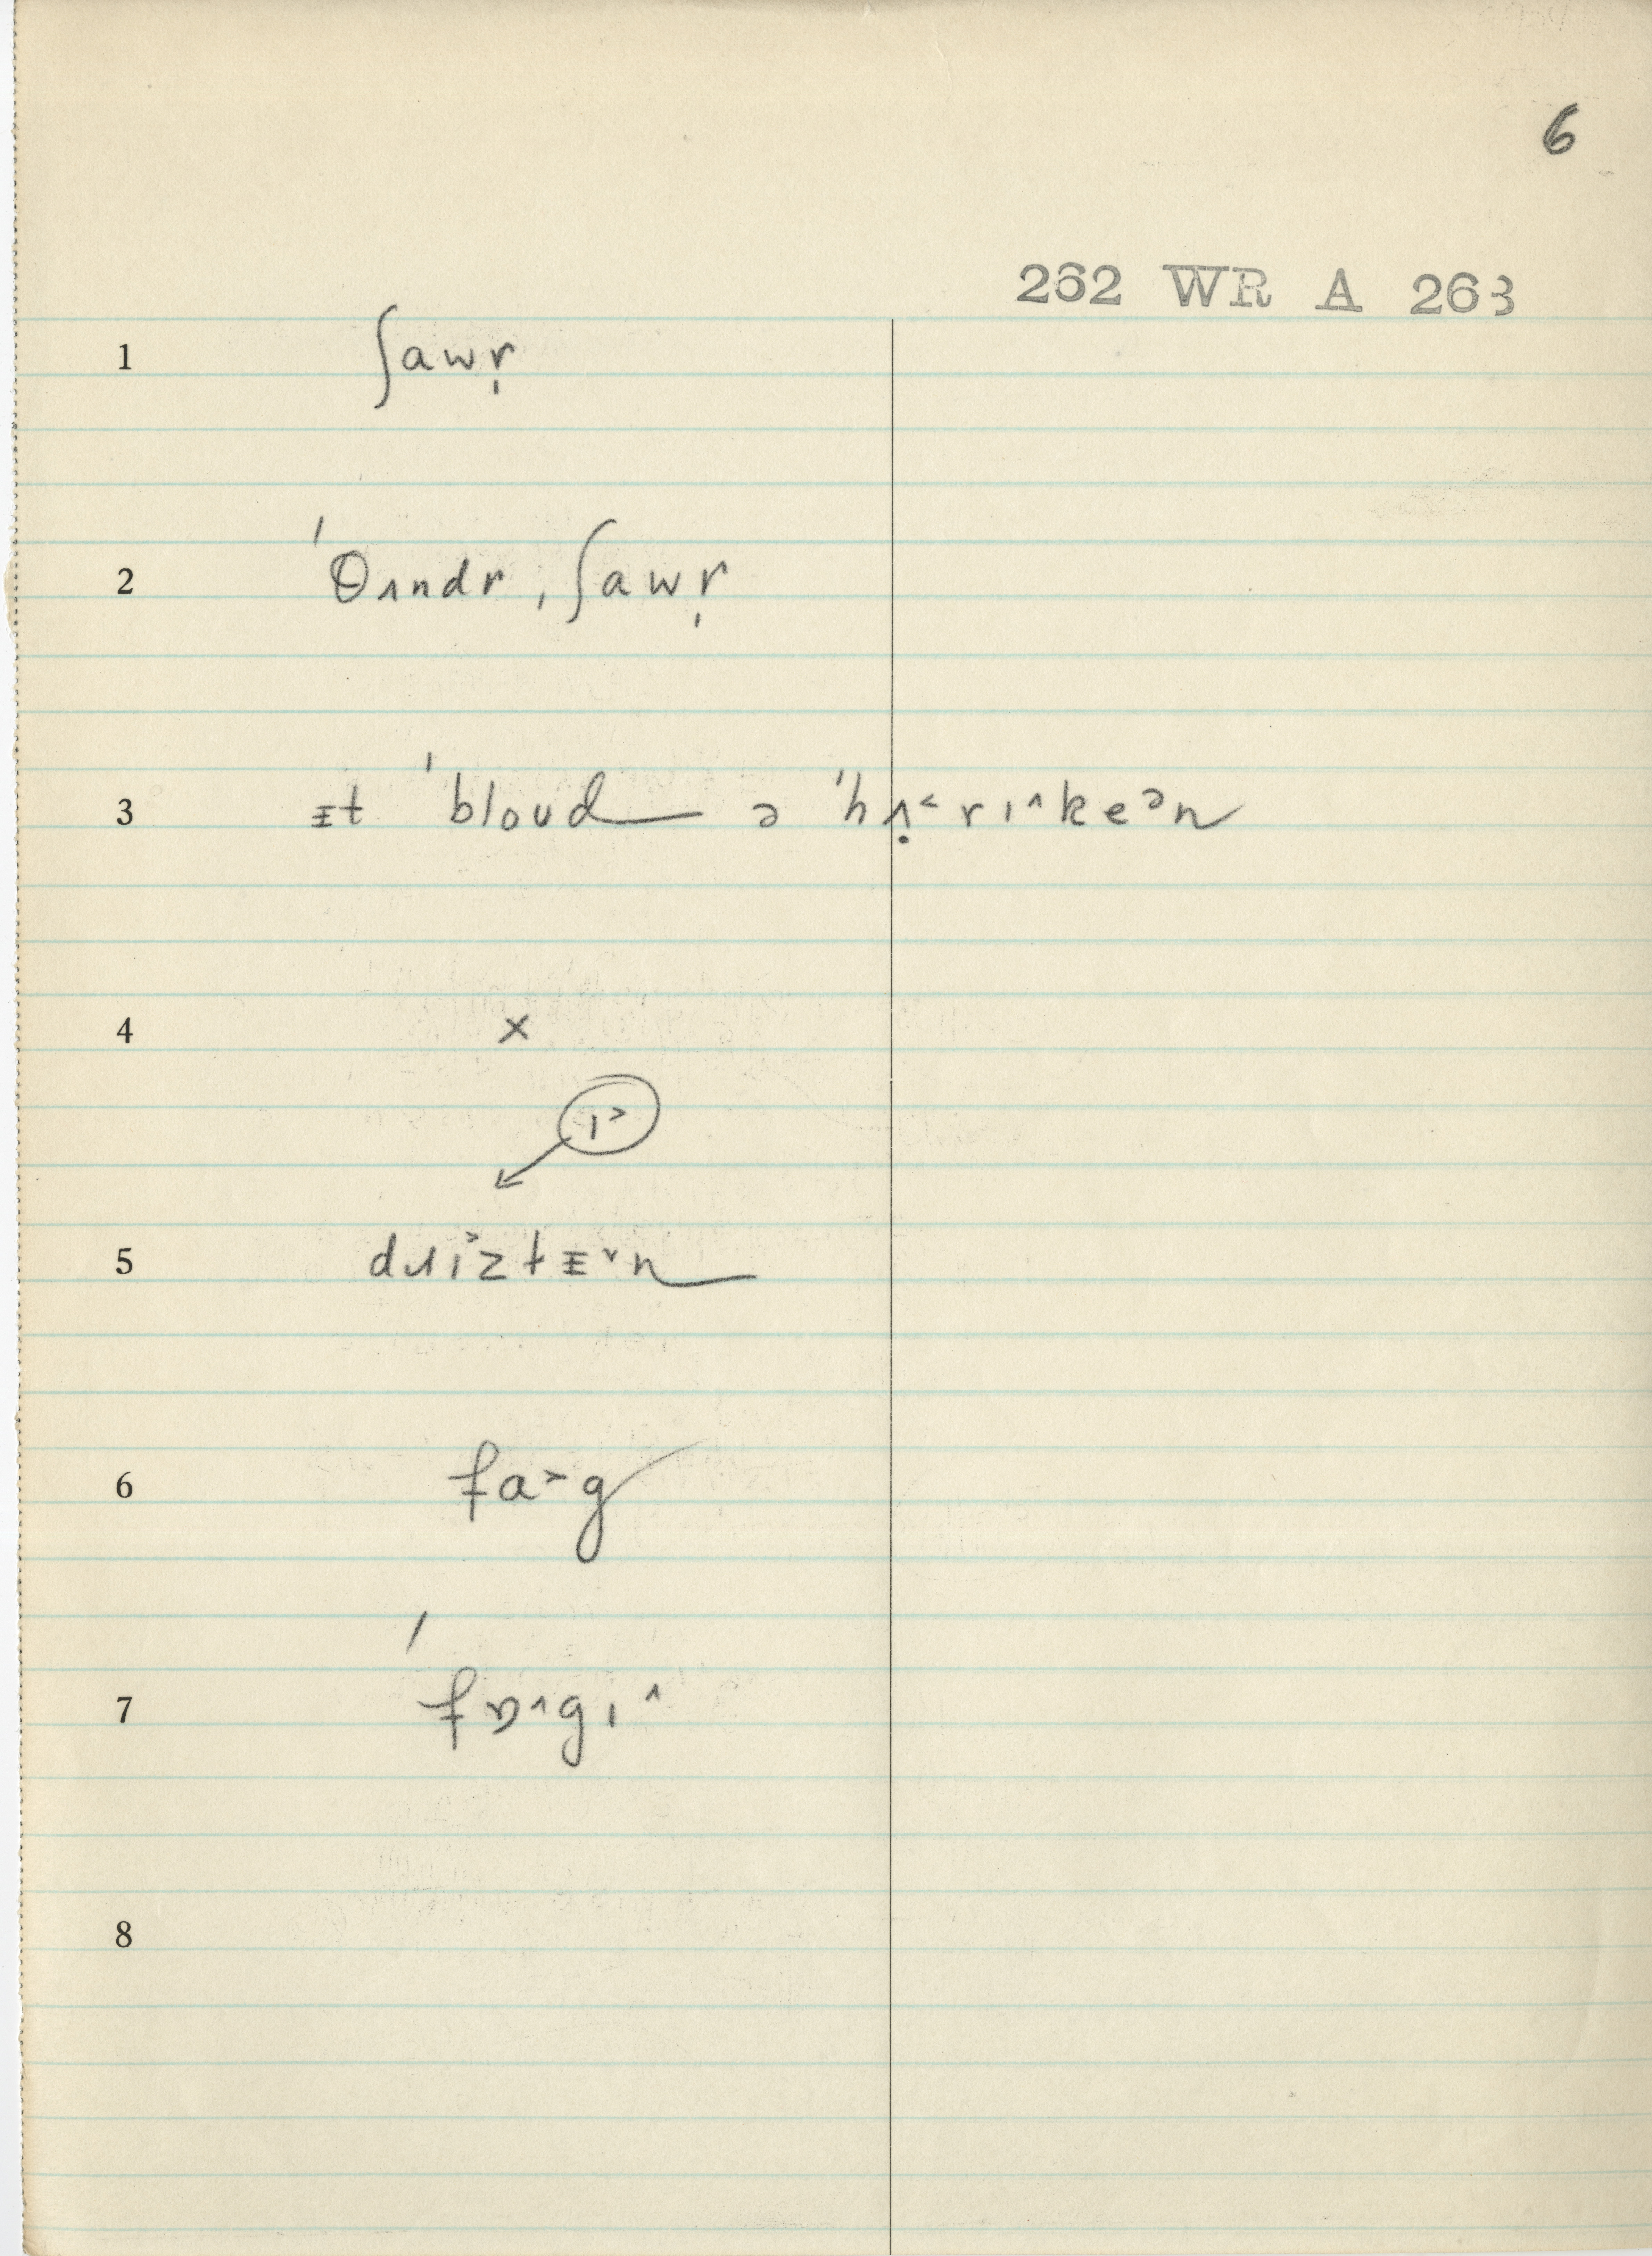 6
262 WR A 263
1 ʃawr̩
2 ˈθʌndr ˌʃawr̩
3 ᵻt ˈbloʊd ə ˈhʌ̣˂rɪ˄keᵊn
4 ×
ɪ˃
5 dɹɪ˃ztᵻ˅n
6 fa˃g
7 ˈfɒ˄gɪ˄
8